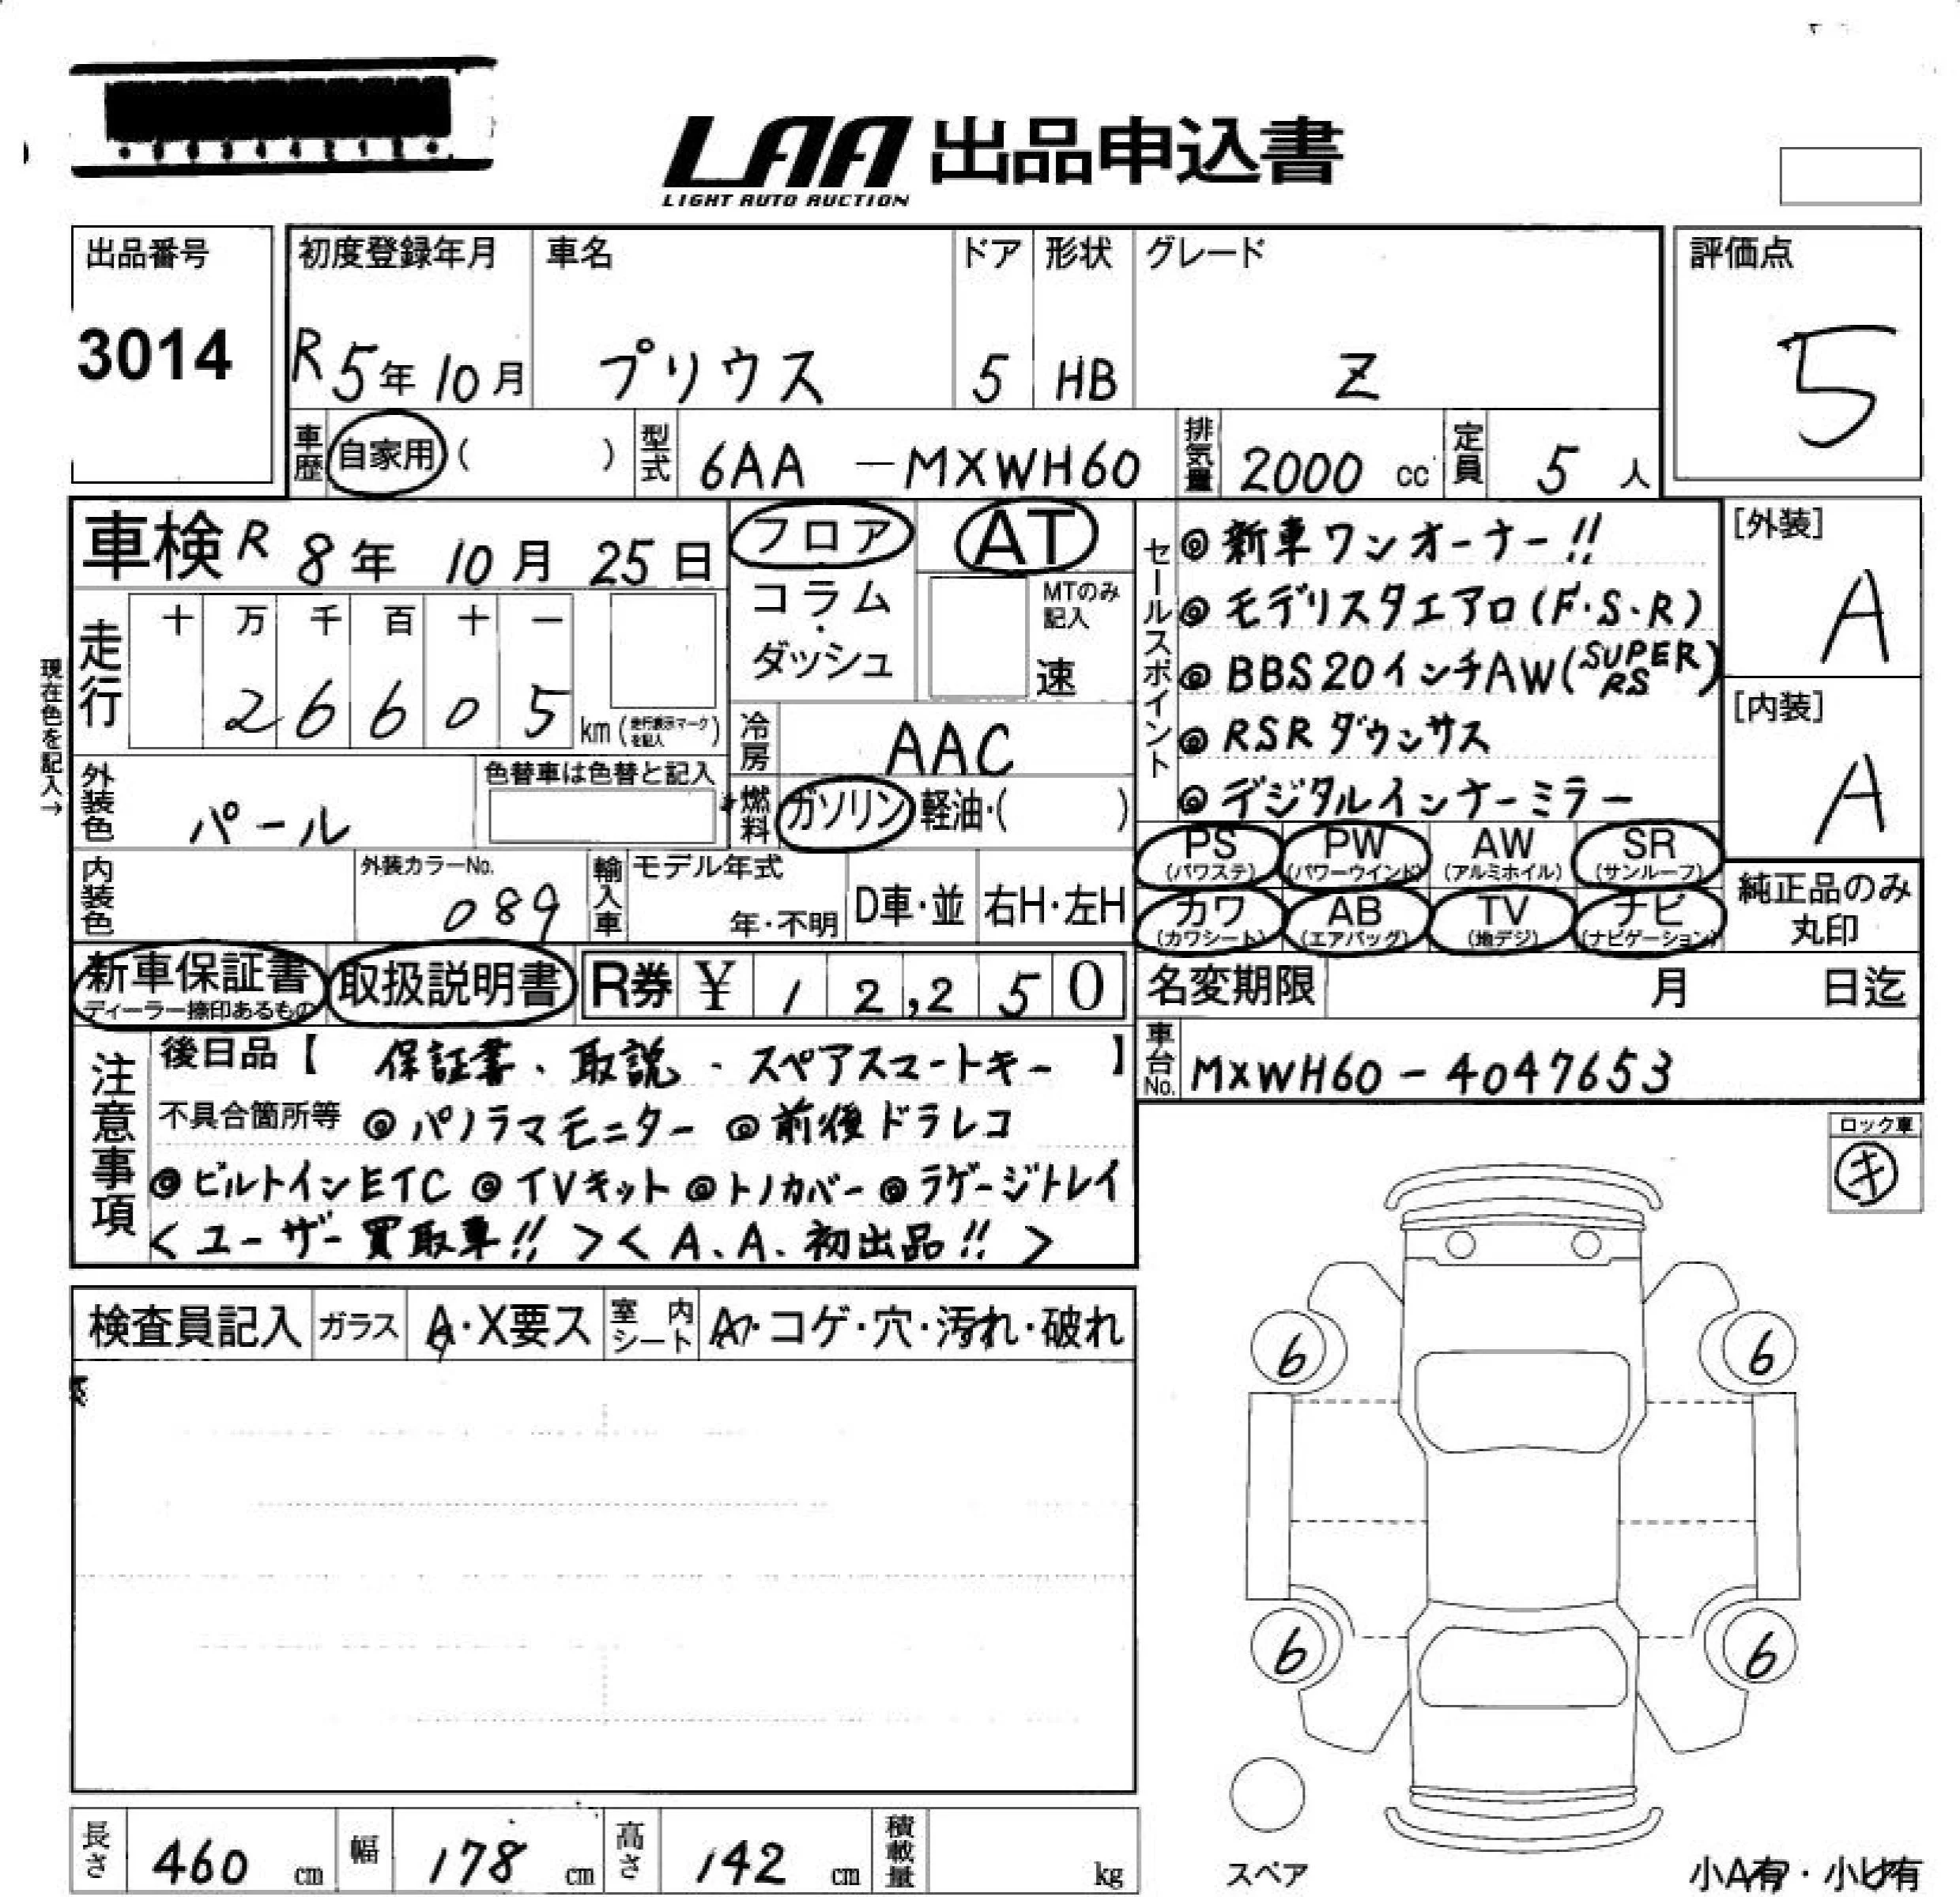 LAA 出品申込書
LIGHT AUTO AUCTION
出品番号
3014
初度登録年月
R5年10月
車名
プリウス
ドア
5
形状
HB
グレード
Z
評価点
5
車歴
自家用( )
型式
6AA-MXWH60
排気量
2000 cc
定員
5人
車検 R8年10月25日
フロア
コラム・ダッシュ
AT
MTのみ記入
速
現在色を記入→
走行
十 万 千 百 十 一
26605 km(走行表示マークを記入)
冷房
AAC
外装色
パール
色替車は色替と記入
燃料
ガソリン 軽油・( )
内装色
外装カラーNo.
089
輸入車
モデル年式
年・不明
D車・並
右H・左H
セールスポイント
◎新車ワンオーナー!!
◎モデリスタエアロ(F・S・R)
◎BBS20インチAW(SUPER RS)
◎RSRダウンサス
◎デジタルインナーミラー
[外装]
A
[内装]
A
PS (パワステ)
PW (パワーウインド)
AW (アルミホイル)
SR (サンルーフ)
カワ (カワシート)
AB (エアバッグ)
TV (地デジ)
ナビ (ナビゲーション)
純正品のみ丸印
新車保証書
ディーラー捺印あるもの
取扱説明書
R券 ¥12,250
名変期限 月 日迄
車台No.
MXWH60-4047653
注意事項
後日品【 保証書、取説・スペアスマートキー 】
不具合箇所等 ◎パノラマモニター ◎前後ドラレコ
◎ビルトインETC ◎TVキット ◎トノカバー ◎ラゲージトレイ
<ユーザー買取車!!><A、A、初出品!!>
ロック車
キ
検査員記入
ガラス
A・X要ス
室内シート
A・コゲ・穴・汚れ・破れ
6
6
6
6
スペア
長さ
460 cm
幅
178 cm
高さ
142 cm
積載量
kg
小A有・小U有